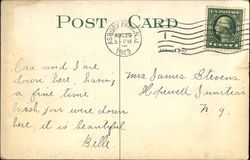 POST CARD
ASBURY PARK, N.J.
AUG 29
5-PM
1913
U.S. POSTAGE
Cora and I are
down here, having
a fine time
Wish you were down
here, it is beautiful
Belle.
Mrs James Stevens
Hopewell Junction
N.Y.